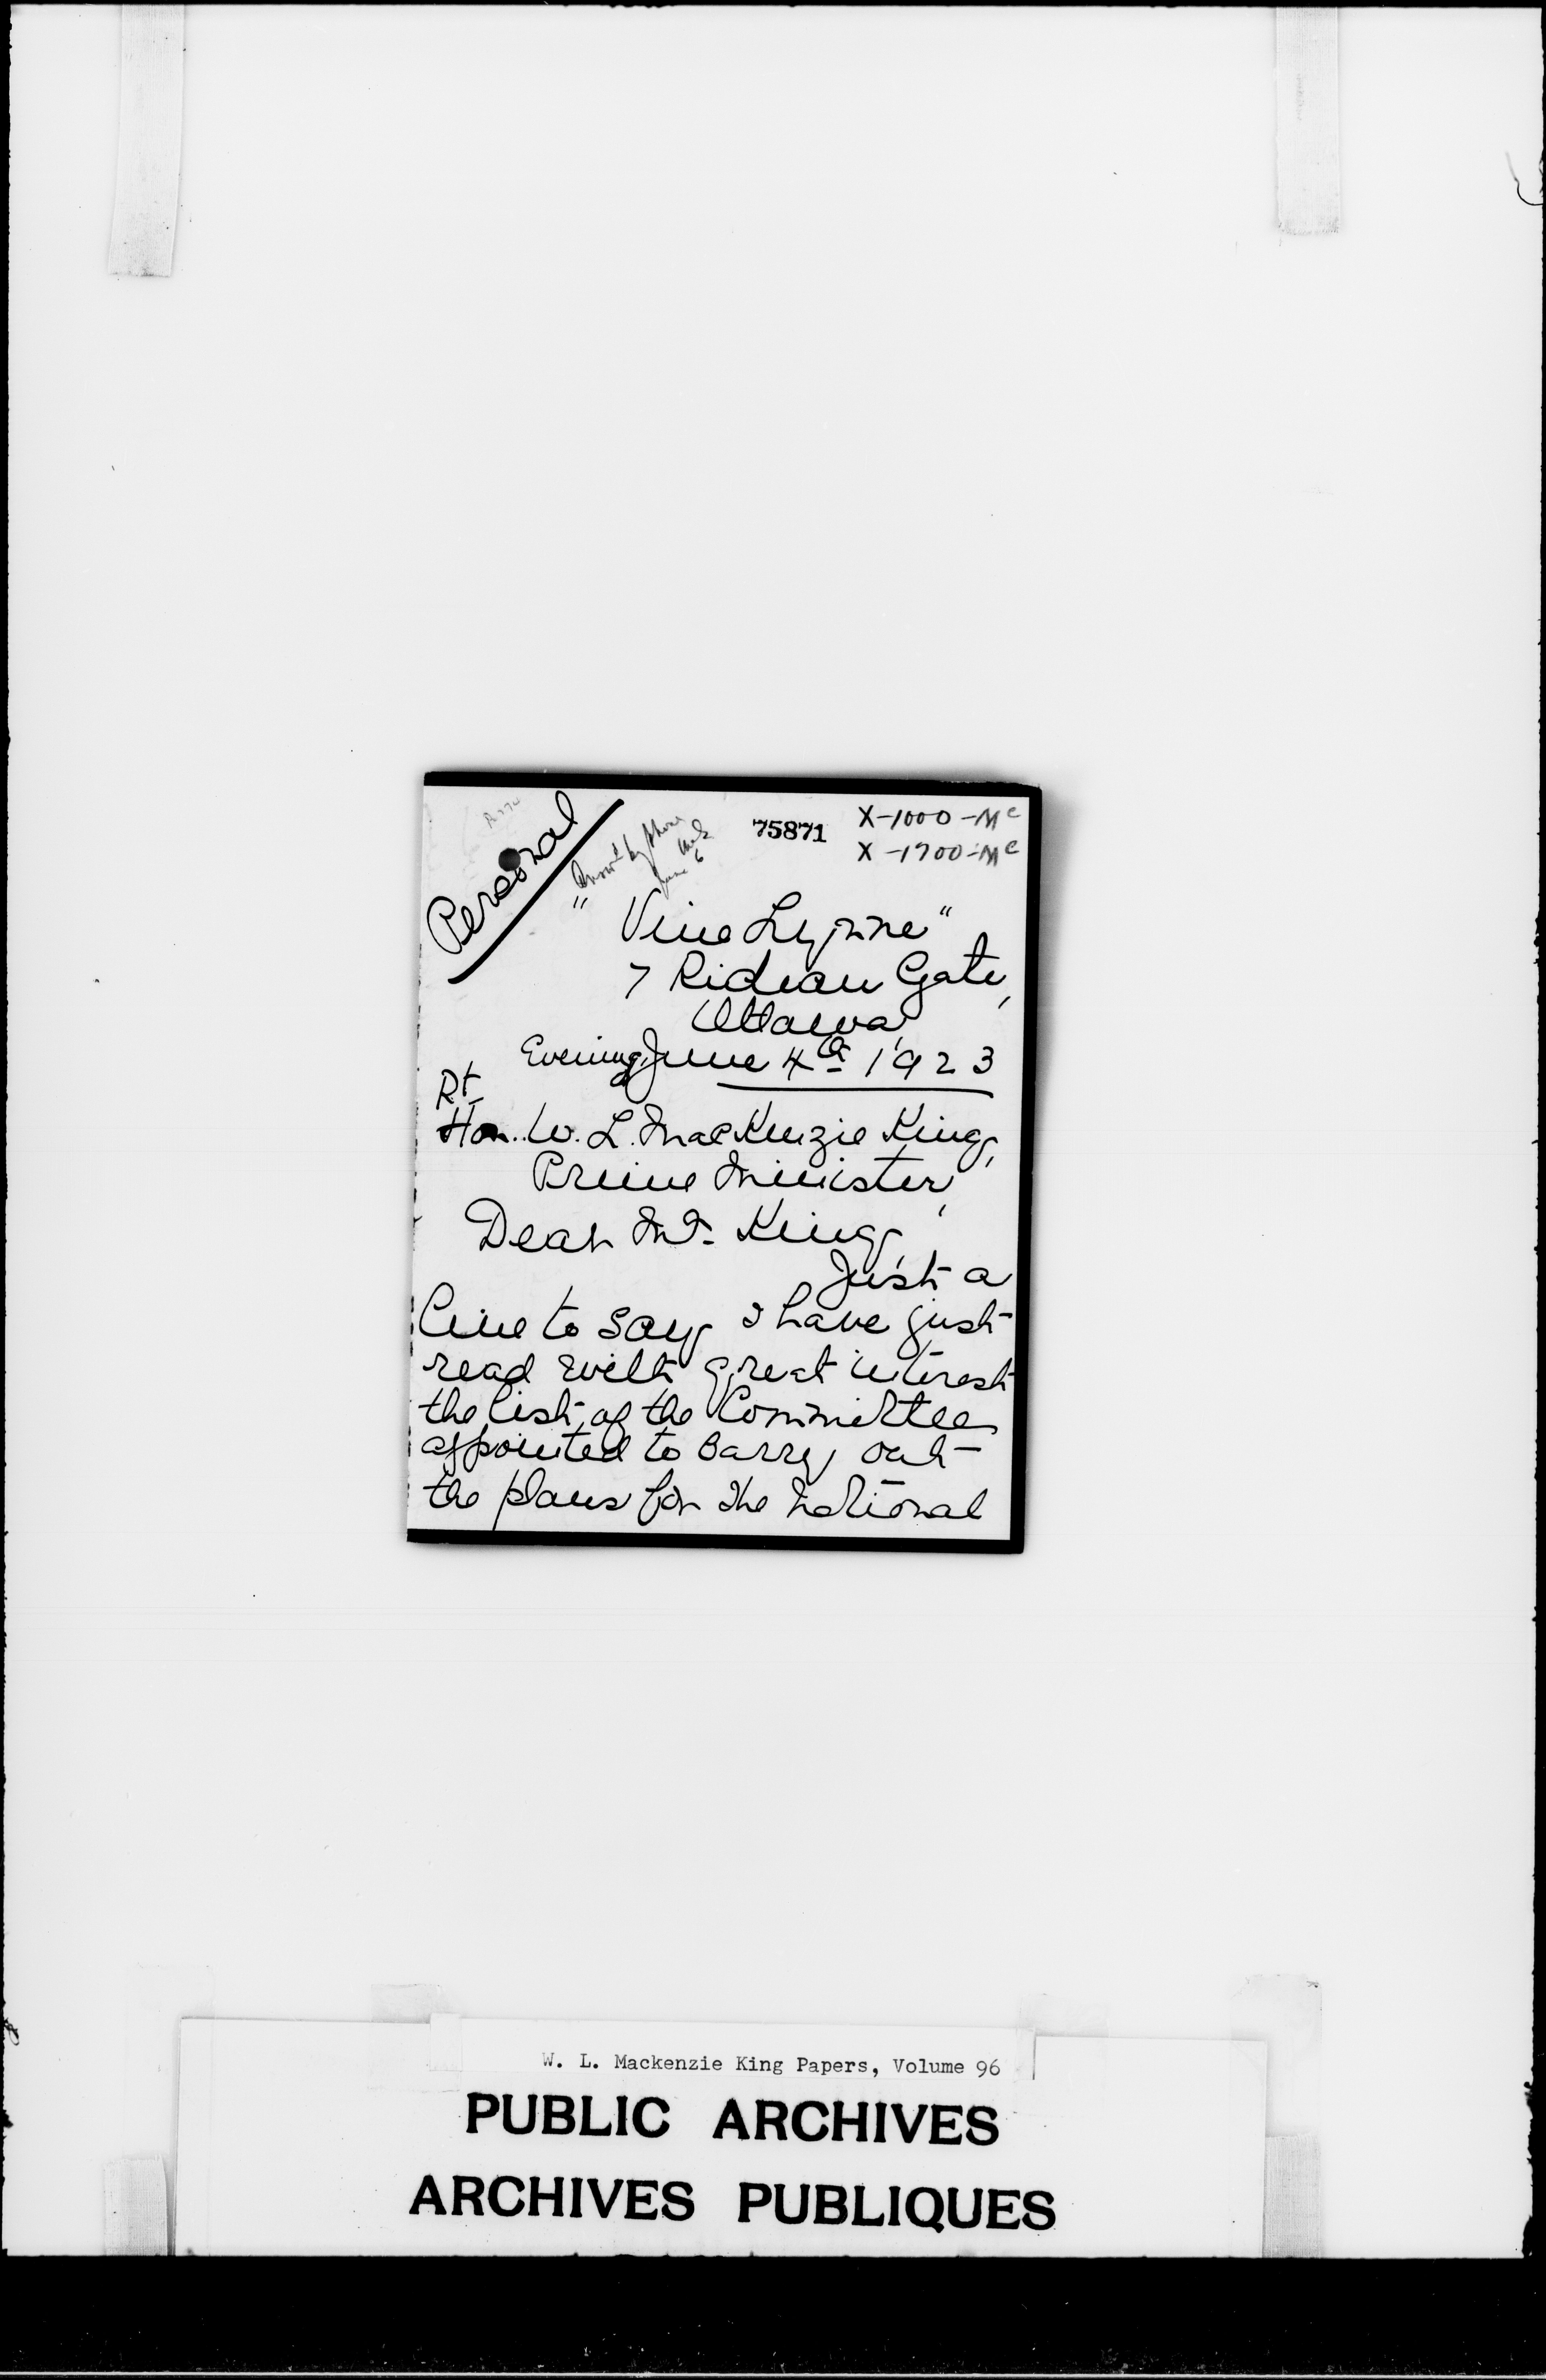 Personal
Answ'd by phone
June 6
75871
X-1000-Mc
X-1700-Mc
"Vine Lynne"
7 Rideau Gate,
Ottawa,
Evening, June 4th 1923
Rt
Hon. W. L. MacKenzie King,
Prime Minister,
Dear Mr. King,
Just a
line to say I have just
read with great interest
the list of the Committee
appointed to carry out
the plans for the National
W. L. Mackenzie King Papers, Volume 96
PUBLIC ARCHIVES
ARCHIVES PUBLIQUES